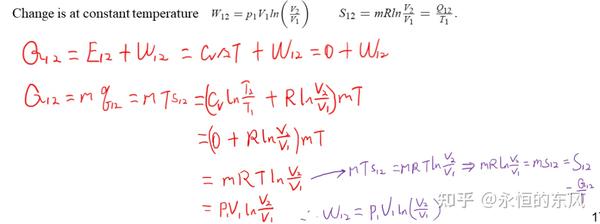 Change is at constant temperature W₁₂ = p₁V₁ln(V₂/V₁) S₁₂ = mRln V₂/V₁ = Q₁₂/T₁.
Q₁₂ = E₁₂ + W₁₂ = CᵥΔT + W₁₂ = 0 + W₁₂
Q₁₂ = m q₁₂ = m T s₁₂ = (Cᵥ ln T₂/T₁ + R ln V₂/V₁) mT
= (0 + R ln V₂/V₁) mT
= mRT ln V₂/V₁ → mTs₁₂ = mRT ln V₂/V₁ ⇒ mR ln V₂/V₁ = ms₁₂ = S₁₂
= Q₁₂/T
= P₁V₁ ln V₂/V₁ ∴ W₁₂ = P₁V₁ ln(V₂/V₁)
知乎 @永恒的东风
1